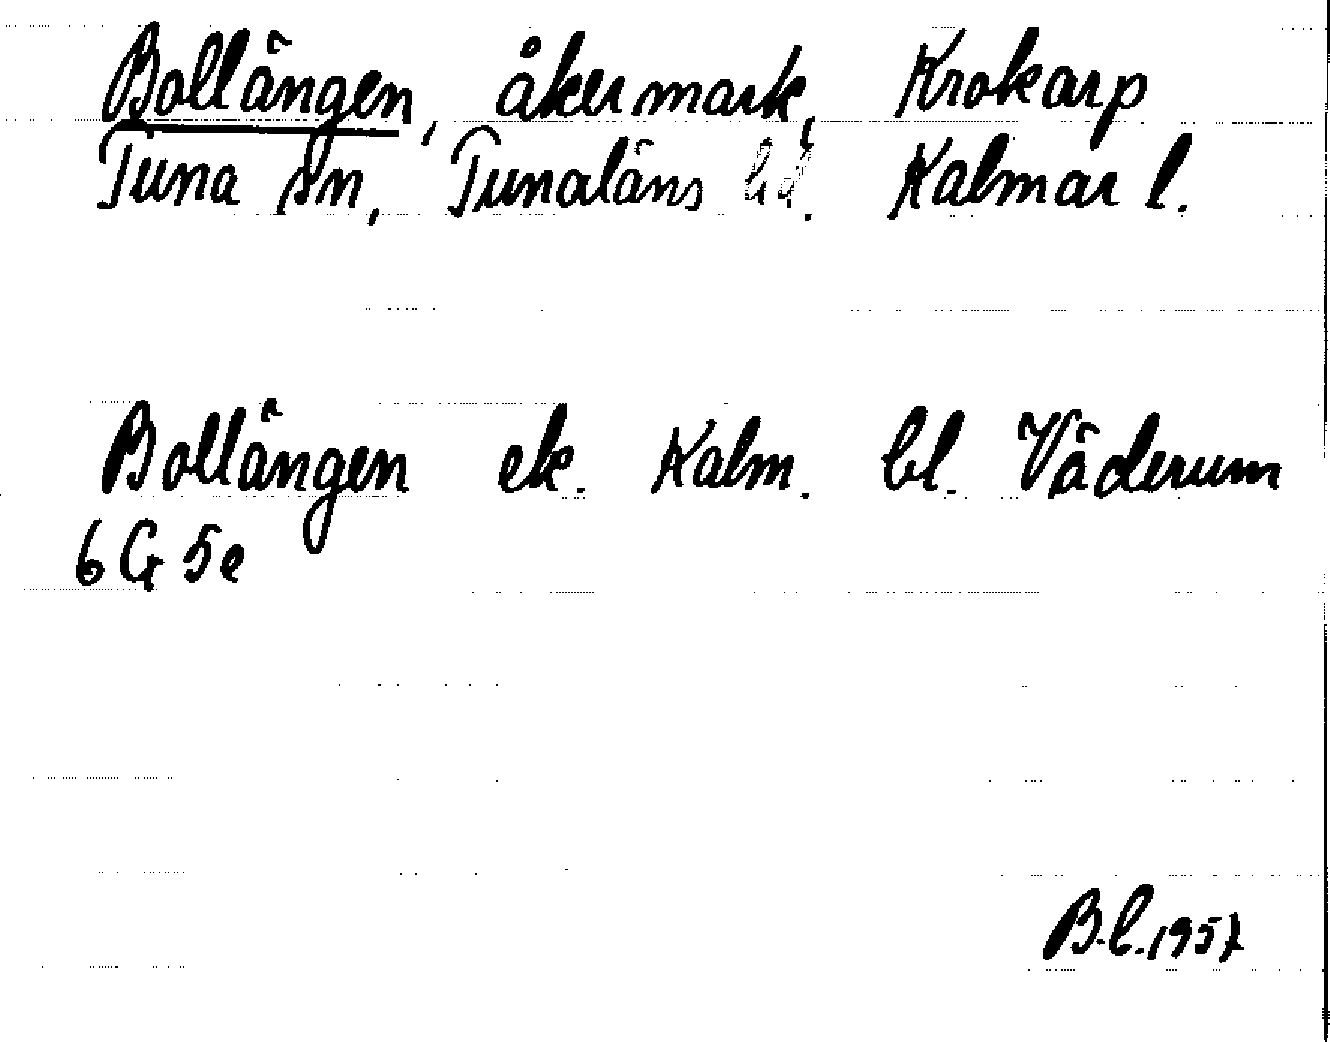 Bollängen, åkermark, Krokarp
Tuna sn, Tunaläns hd. Kalmar l.
Bollängen ek. Kalm. bl. Väderum
6G 5e
B.L. 1957